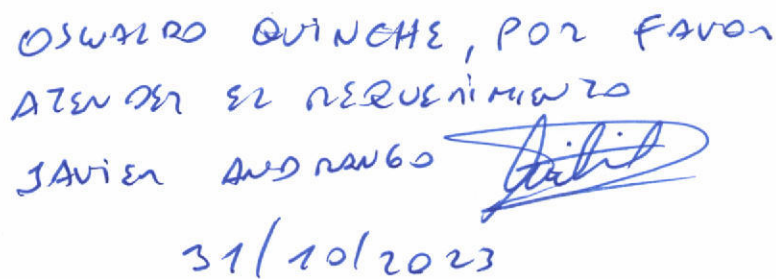 OSWALDO QUINCHE, POR FAVOR
ATENDER EL REQUERIMIENTO
JAVIER ANDRANGO
31/10/2023